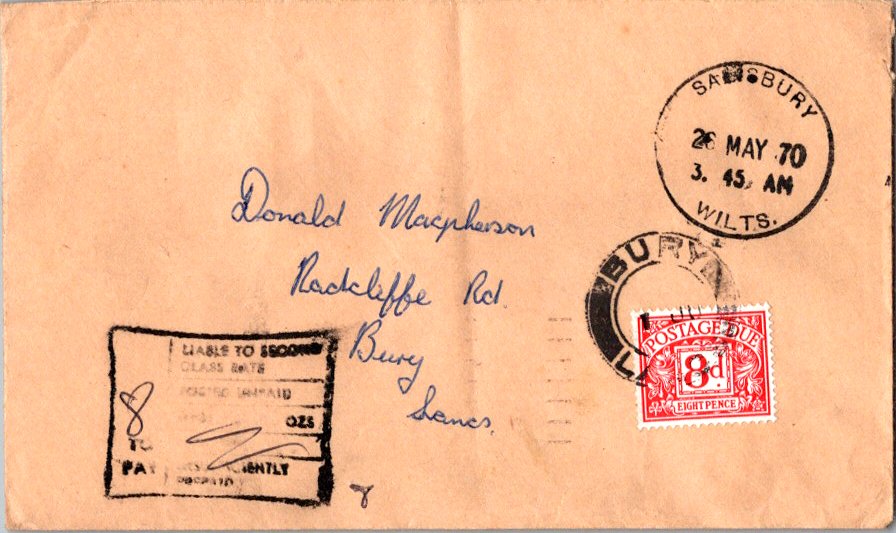 SALISBURY
MAY 70
3. 45 AM
WILTS.
Donald Macpherson
Radcliffe Rd.
Bury
Lancs.
BURY
POSTAGE DUE
8d
EIGHT PENCE
LIABLE TO SECOND
CLASS RATE
POSTED UNPAID
OZS
8
TO
PAY
PREPAID
8